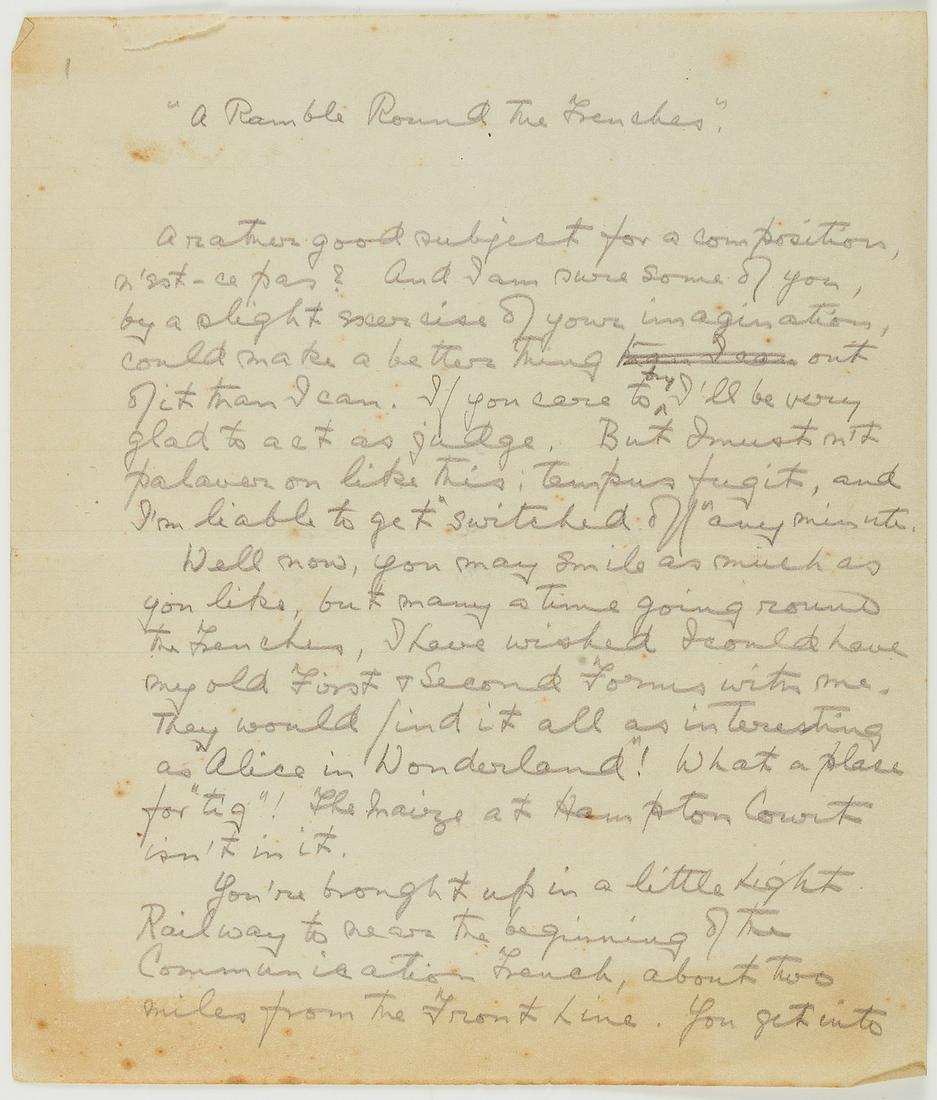 1
"A Ramble Round The Trenches".
A rather good subject for a composition,
n'est-ce pas? And I am sure some of you,
by a slight exercise of your imagination,
could make a better thing than I can out
of it than I can. If you care to try I'll be very
glad to act as judge. But I mustn't
palaver on like this; tempus fugit, and
I'm liable to get "switched off" any minute.
Well now, you may smile as much as
you like, but many a time going round
the Trenches, I have wished I could have
my old First & Second Forms with me.
They would find it all as interesting
as "Alice in Wonderland"! What a place
for "tig"! The Maize at Hampton Court
isn't in it.
You're brought up in a little Light
Railway to near the beginning of the
Communication Trench, about two
miles from the Front Line. You get into